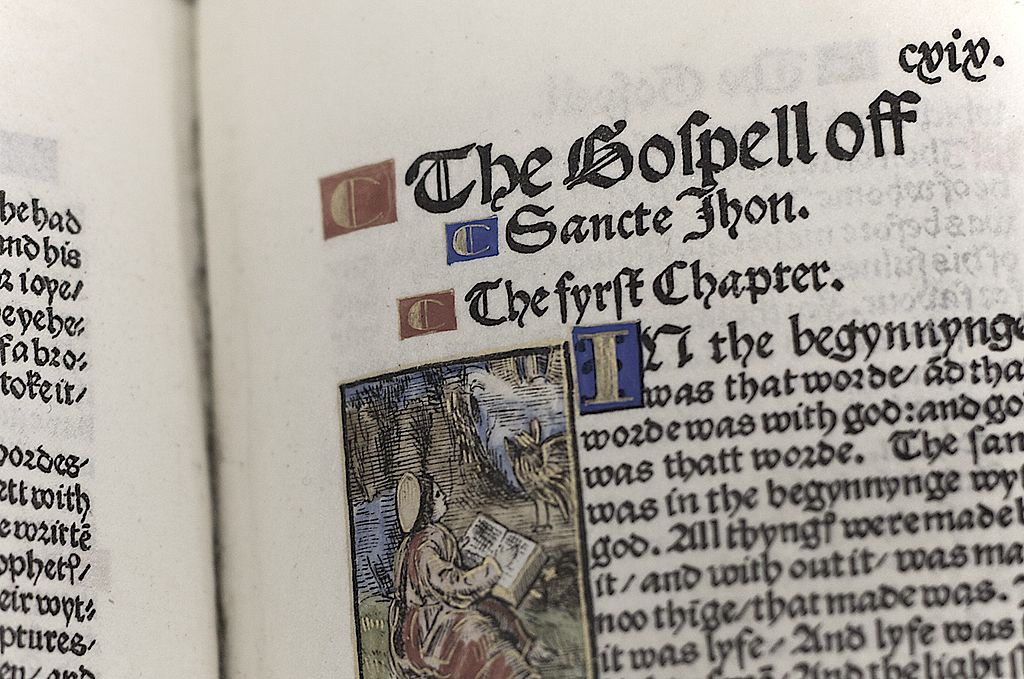 he had
and his
ioye/
eyehe⸗
f a bro⸗
toke it/
wordes/
ett with
e writtē
ophetꝭ/
eir wyt⸗
ptures/
en/ and
cxix.
The Gospell off
Sancte Jhon.
The fyrst Chapter.
IN the begynnynge
was that worde/ ād tha
worde was with god: and go
was thatt worde. The sam
was in the begynnynge wyt
god. All thyngꝭ were made b
it/ and with out it/ was ma
noo thīge/ that made was.
it was lyfe/ And lyfe was
And the light